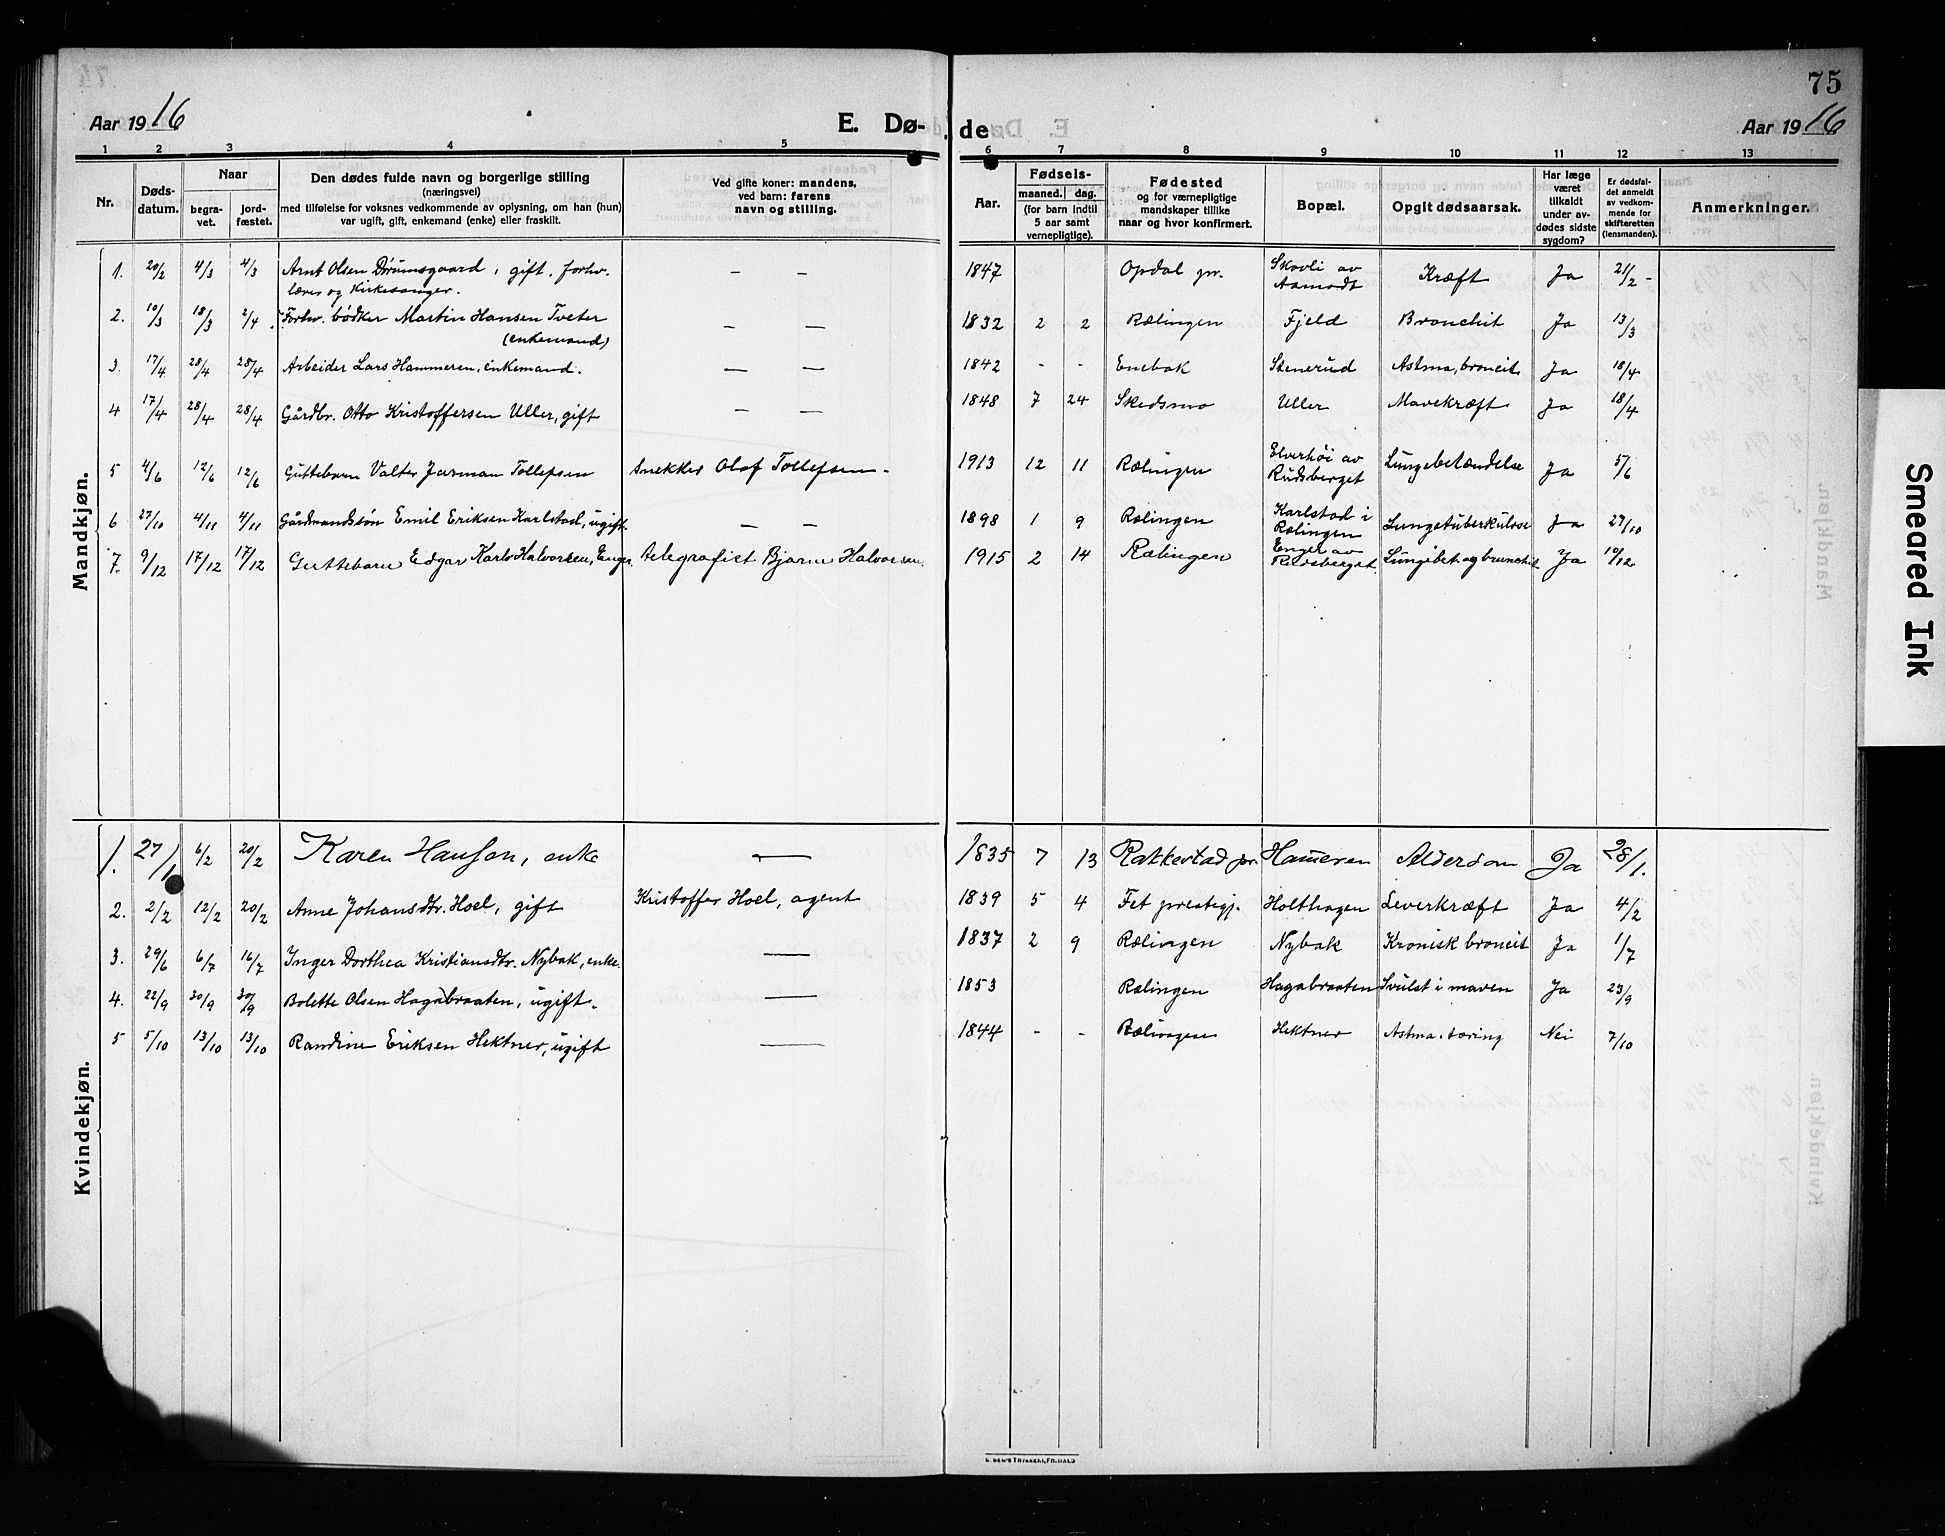 75
Aar 1916
E. Dø-
de
Aar 1916
1 2 3 4 5 6 7 8 9 10 11 12 13
Nr.
Døds-
datum.
Naar
begra-
vet.
jord-
fæstet.
Den dødes fulde navn og borgerlige stilling
(næringsvei)
med tilføielse for voksnes vedkommende av oplysning, om han (hun)
var ugift, gift, enkemand (enke) eller fraskilt.
Ved gifte koner: mandens,
ved barn: farens
navn og stilling.
Aar.
Fødsels-
maaned. dag.
(for barn indtil
5 aar samt
vernepligtige).
Fødested
og for værnepligtige
mandskaper tillike
naar og hvor konfirmert.
Bopæl.
Opgit dødsaarsak.
Har læge
været
tilkaldt
under av-
dødes sidste
sygdom?
Er dødsfal-
det anmeldt
av vedkom-
mende for
skifteretten
(lensmanden).
Anmerkninger.
Mandkjøn.
1. 20/2 4/3 4/3 Arnt Olsen Dørumsgaard, gift. forhv. — — 1847 Opdal pr. Skovli av Kræft Ja 21/2 -
lærer og Kirkesanger. Aamodt
2. 10/3 18/3 2/4. Forhv. bødker Martin Hansen Tveter — — 1832 2 2 Rælingen Fjeld Bronchit Ja 13/3
(enkemand)
3. 17/4 28/4 28/4 Arbeider Lars Hammeren, enkemand. — — 1842 - - Enebak Stenerud Astma, broncit Ja 18/4
4 17/4 28/4 28/4 Gårdbr. Otto Kristoffersen Uller, gift — — 1848 7 24 Skedsmo Uller Mavekræft Ja 18/4
5 4/6 12/6 12/6 Guttebarn Valter Jarman Tollefsen Snekker Olof Tollefsen - 1913 12 11 Rælingen Elverhöi av Lungebetændelse Ja 5/6
Rudsberget
6 27/10 4/11 4/11 Gårdmandssøn Emil Eriksen Karlstad, ugift. — — 1898 1 9 Rælingen Karlstad i Lungetuberkulose Ja 27/10
Rælingen
7. 9/12 17/12 17/12 Guttebarn Edgar Karlo Halvorsen, Enger telegrafist Bjarne Halvorsen. 1915 2 14 Rælingen Enger av Lungebet. og brunchit Ja 10/12
Rudsberget.
Kvindekjøn.
1. 27/1 6/2 20/2 Karen Hansen, enke — 1835 7 13 Rakkestad pr. Hammeren Alderdom Ja 28/1.
2. 2/2 12/2 20/2 Anne Johansdtr. Hoel, gift Kristoffer Hoel, agent 1839 5 4 Fet prestegj. Holthagen Leverkræft Ja 4/2
3. 29/6 6/7 16/7 Inger Dorthea Kristiansdtr. Nybak, enke. — 1837 2 9 Rælingen Nybak Kronisk broncit Ja 1/7
4. 22/9 30/9 30/9 Bolette Olsen Hagabraaten, ugift. — 1853 Rælingen Hagabraaten Svulst i maven Ja 23/9
5 5/10 13/10 13/10 Randine Eriksen Hektner, ugift — 1844 - - Rælingen Hektner Astma. tæring Nei 7/10
Smeared Ink